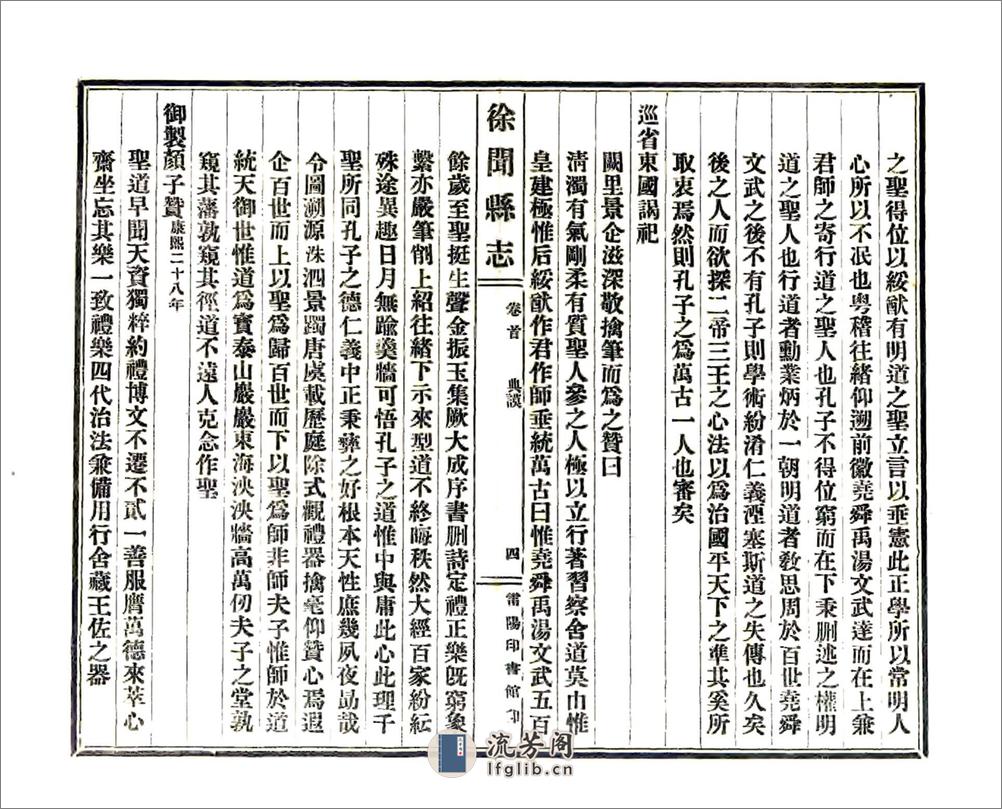 之聖得位以綏猷有明道之聖立言以垂憲此正學所以常明人
心所以不泯也粵稽往緒仰溯前徽堯舜禹湯文武達而在上兼
君師之寄行道之聖人也孔子不得位窮而在下秉刪述之權明
道之聖人也行道者勳業炳於一朝明道者教思周於百世堯舜
文武之後不有孔子則學術紛淆仁義湮塞斯道之失傳也久矣
後之人而欲探二帝三王之心法以為治國平天下之準其奚所
取衷焉然則孔子之為萬古一人也審矣
巡省東國謁祀
闕里景企滋深敬摛筆而為之贊曰
清濁有氣剛柔有質聖人參之人極以立行著習察舍道莫由惟
皇建極惟后綏猷作君作師垂統萬古曰惟堯舜禹湯文武五百
徐聞縣志
卷首
典謨
四
雷陽印書館印
餘歲至聖挺生聲金振玉集厥大成序書刪詩定禮正樂既窮象
繫亦嚴筆削上紹往緒下示來型道不終晦秩然大經百家紛紜
殊途異趣日月無踰羹牆可悟孔子之道惟中與庸此心此理千
聖所同孔子之德仁義中正秉彝之好根本天性庶幾夙夜勗哉
令圖溯源洙泗景躅唐虞載歷庭除式觀禮器摛毫仰贊心焉遐
企百世而上以聖為歸百世而下以聖為師非師夫子惟師於道
統天御世惟道為寶泰山巖巖東海泱泱牆高萬仞夫子之堂孰
窺其藩孰窺其徑道不遠人克念作聖
御製顏子贊康熙二十八年
聖道早聞天資獨粹約禮博文不遷不貳一善服膺萬德來萃心
齋坐忘其樂一致禮樂四代治法兼備用行舍藏王佐之器
流芳阁
lfglib.cn